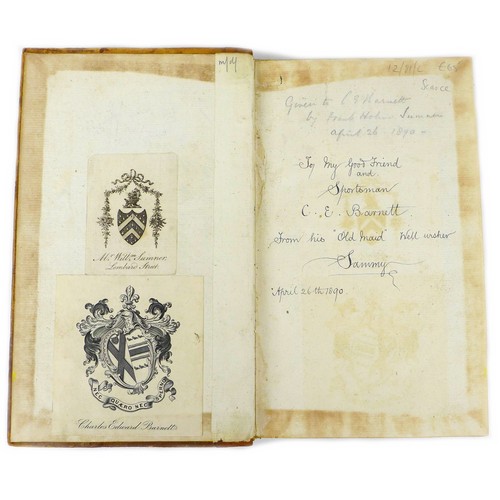 m/d/
Mr. Willm. Sumner,
Lombard Street
NEC QUÆRO NEC SPERNO
Charles Edward Barnett.
12/91/2
Given to C E Barnett
by Frank Holme Sumner
April 26 1890
To My Good Friend
and
Sportsman
C. E. Barnett.
From his "Old Maid" Well wisher
Sammy
April 26th 1890.